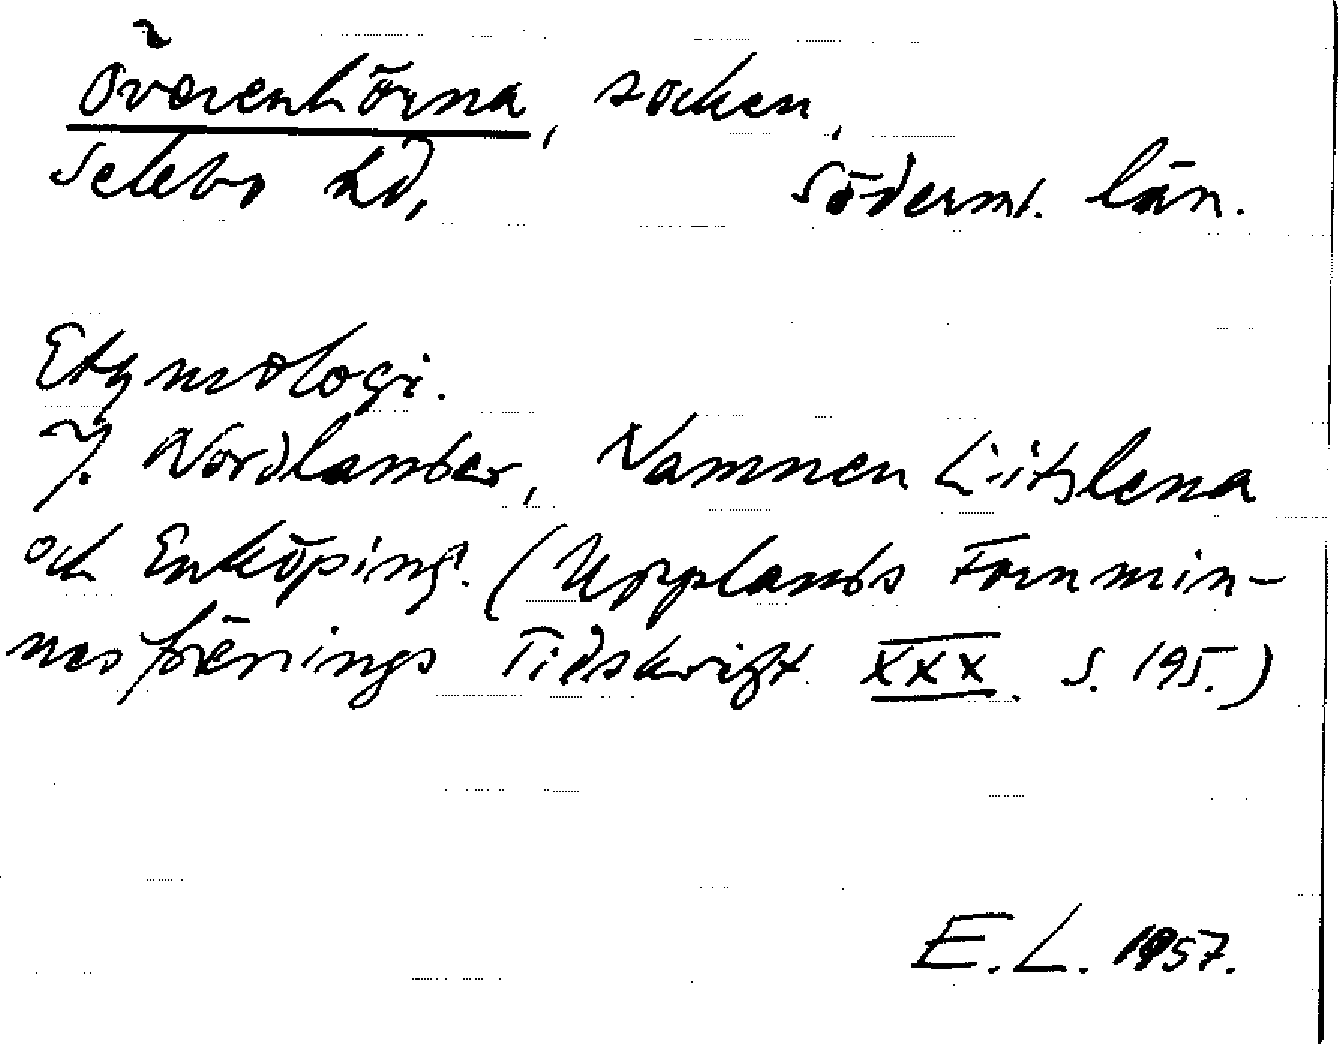 Överenhörna, socken,
Selebo hd, Söderml. län.
Etymologi.
J. Nordlander, Namnen Litslena
och Enköping. (Upplands Fornmin-
nesförenings Tidskrift XXX. S. 195.)
E. L. 1957.